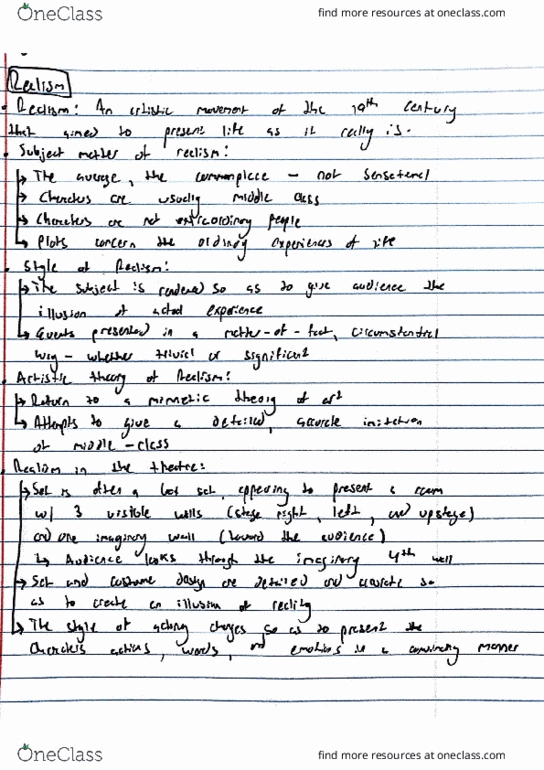 OneClass
find more resources at oneclass.com
Realism
• Realism: An artistic movement of the 19th century
that aimed to present life as it really is.
• Subject matter of realism:
↳ The average, the commonplace - not sensational
↳ Characters are usually middle class
↳ Characters are not extraordinary people
↳ Plots concern the ordinary experiences of life
• Style of Realism:
↳ The subject is rendered so as to give audience the
illusion of actual experience
↳ Events presented in a matter-of-fact, circumstantial
way - whether trivial or significant
• Artistic theory of Realism:
↳ Return to a mimetic theory of art
↳ Attempts to give a detailed, accurate imitation
of middle-class
• Realism in the theatre:
↳ Set is often a box set, appearing to present a room
w/ 3 visible walls (stage right, left, and upstage)
and one imaginary wall (toward the audience)
↳ Audience looks through the imaginary 4th wall
↳ Set and costume design are detailed and accurate so
as to create an illusion of reality
↳ The style of acting changes so as to present the
characters actions, words, and emotions in a convincing manner
OneClass
find more resources at oneclass.com